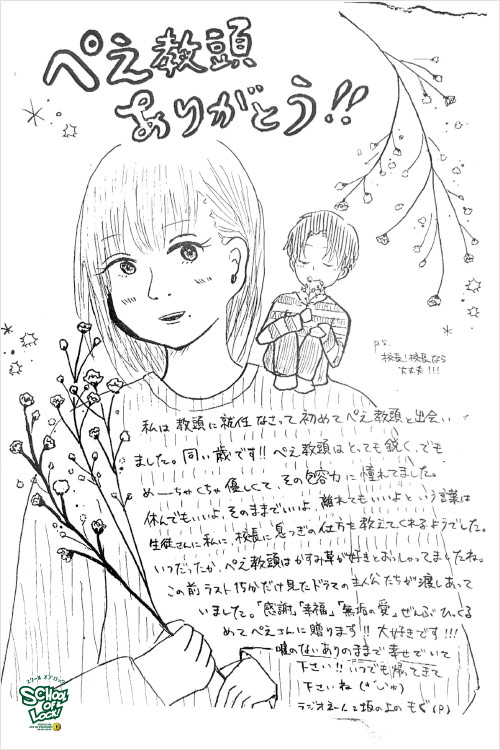 ぺえ教頭
ありがとう!!
P.S.
校長!校長なら
大丈夫!!!
私は教頭に就任なさって初めてぺえ教頭と出会い
ました。同い歳です!! ぺえ教頭はとっても鋭く、でも
めーちゃくちゃ優しくて、その包容力に憧れてました。
休んでもいいよ、そのままでいいよ、離れてもいいよという言葉は
生徒さんに私に、校長に息つぎの仕方を教えてくれるようでした。
いつだったか、ぺえ教頭はかすみ草が好きとおっしゃってましたね。
この前ラスト15分だけ見たドラマの主人公たちが渡しあって
いました。「感謝」「幸福」「無垢の愛」ぜんぶひっくる
めてぺえさんに贈ります!! 大好きです!!!
嘘のないありのままで幸せでいて
下さい!! いつでも帰ってきて
下さいね
ラジオネーム 坂の上のもぐ(P)
スクール オブ ロック
SCHOOL
OF
LOCK!